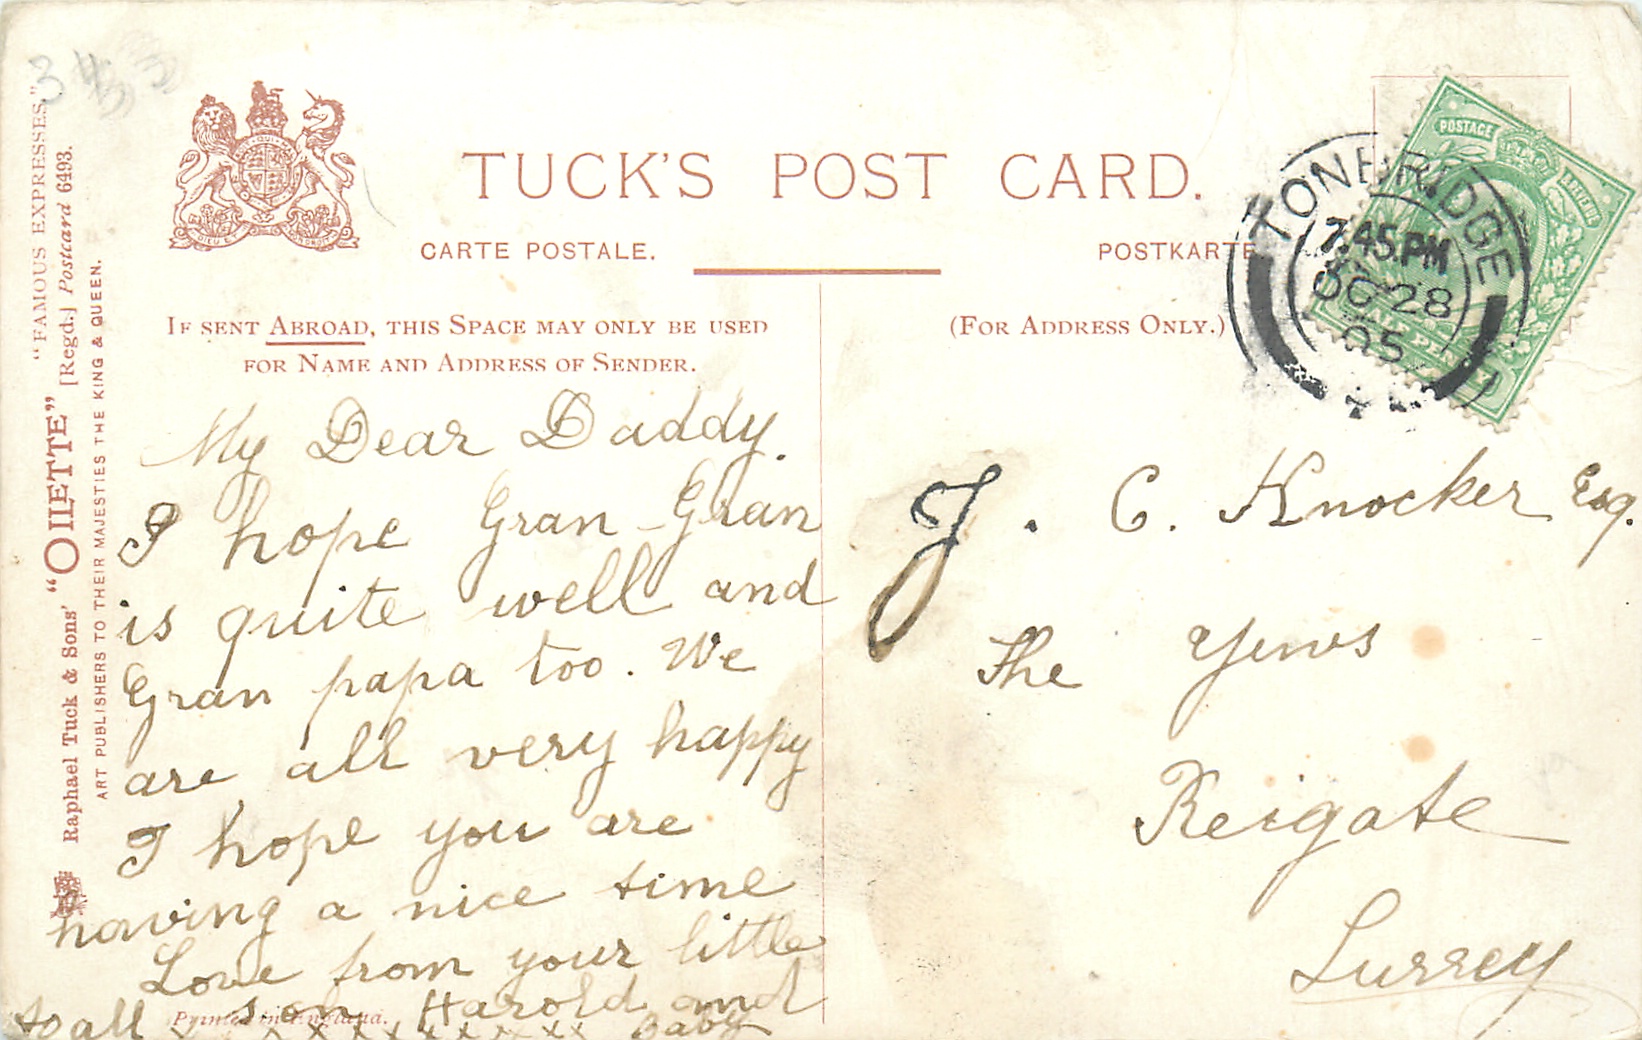 3433
"FAMOUS EXPRESSES."
Raphael Tuck & Sons' "OILETTE" [Regd.] Postcard 6493.
ART PUBLISHERS TO THEIR MAJESTIES THE KING & QUEEN.
TUCK'S POST CARD.
CARTE POSTALE.
POSTKARTE.
IF SENT ABROAD, THIS SPACE MAY ONLY BE USED
FOR NAME AND ADDRESS OF SENDER.
(FOR ADDRESS ONLY.)
POSTAGE
HALFPENNY
TONBRIDGE
7.45.PM
OC 28
05
My Dear Daddy.
I hope Gran-Gran
is quite well and
Gran papa too. We
are all very happy
I hope you are
having a nice time
Love from your little
to all son Harold and
x x x x x x x x x x Baby
Printed in England.
J. C. Knocker Esq.
The Yews
Reigate
Surrey